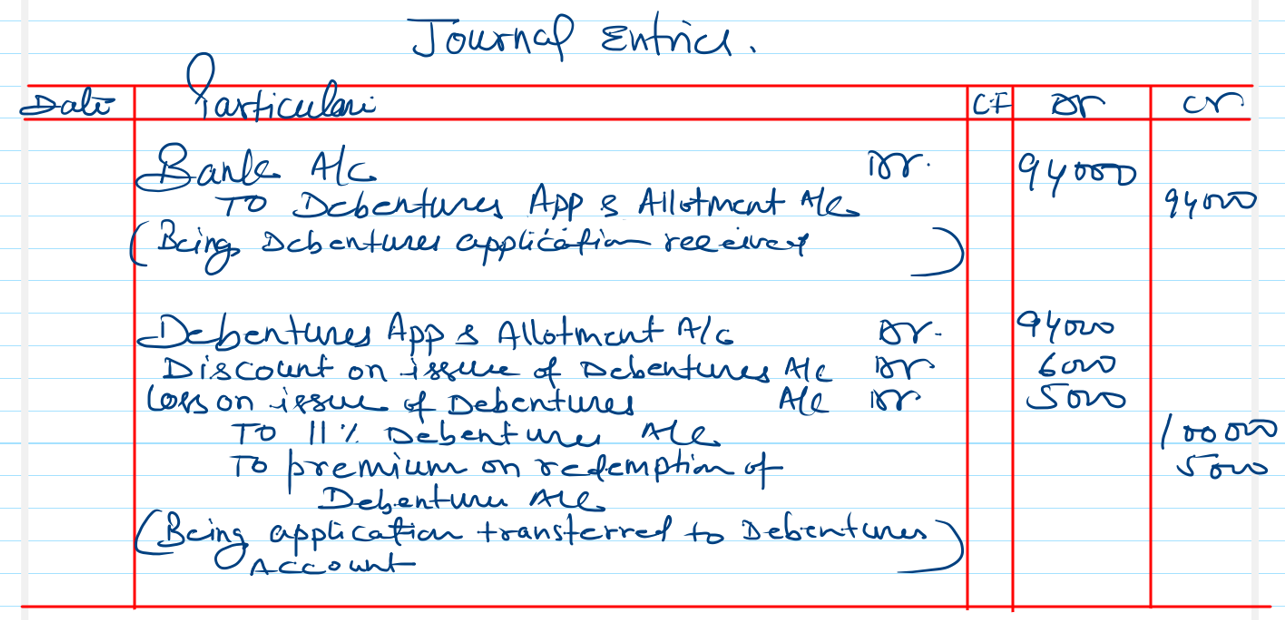 Journal Entries.
Date Particulars CF Dr Cr
Bank A/c Dr. 94000
To Debentures App & Allotment A/c 94000
(Being Debentures application received)
Debentures App & Allotment A/c Dr. 94000
Discount on issue of Debentures A/c Dr 6000
Loss on issue of Debentures A/c Dr 5000
To 11% Debentures A/c 100000
To premium on redemption of 5000
Debenture A/c
(Being application transferred to Debentures
Account)